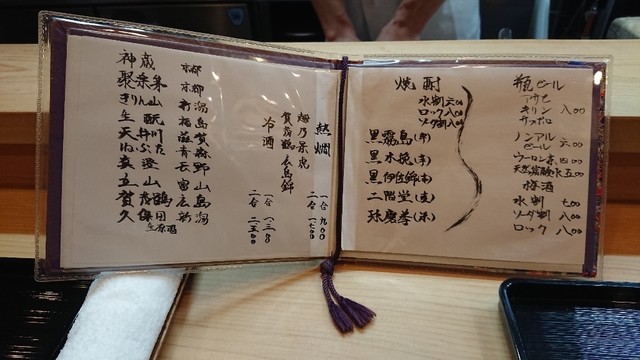 神蔵 京都
聚楽第 京都
きりん山 新潟
生酛 福島
天井川 滋賀
ねぶた 青森
真澄 長野
立山 富山
賀茂鶴 広島
久保田 新潟
生原酒
熱燗
越乃景虎
賀茂鶴 広島錦
一合 九〇〇
二合 一七〇〇
冷酒
一合 一三〇〇
二合 二五〇〇
焼酎
水割 六〇〇
ロック 八〇〇
ソーダ割 八〇〇
黒霧島(芋)
黒水挽(芋)
黒伊佐錦(芋)
二階堂(麦)
球磨拳(米)
瓶ビール
アサヒ
キリン 八〇〇
サッポロ
ノンアル
ビール 六〇〇
ウーロン茶 四〇〇
天然炭酸水 五〇〇
梅酒
水割 七〇〇
ソーダ割 八〇〇
ロック 八〇〇